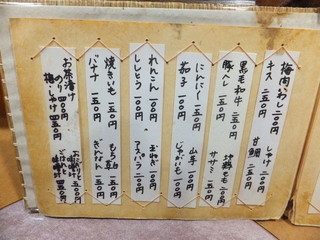 梅肉いわし 二〇〇円
キス 二五〇円
しゃけ 二〇〇円
甘鯛 二五〇円
黒毛和牛 二五〇円
豚ヘレ 二〇〇円
ササミ 一五〇円
にんにく 一五〇円
茄子 一〇〇円
山芋 一〇〇円
じゃがいも 一〇〇円
れんこん 一〇〇円
ししとう 一〇〇円
玉ねぎ 一〇〇円
アスパラ 二〇〇円
焼きいも 一五〇円
バナナ 一五〇円
もち 一五〇円
ぎんなん 一五〇円
お茶漬け
のり 四〇〇円
梅・しゃけ 四五〇円
おにぎりと味噌汁
ごはんと味噌汁 三五〇円